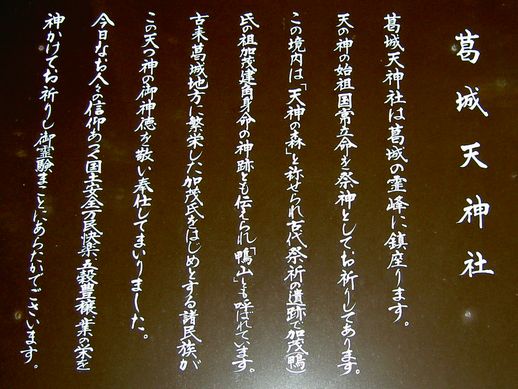 葛城天神社
葛城天神社は葛城の霊峰に鎮座します。
天の神の始祖国常立命を祭神としてお祈りしてあります。
この境内は「天神の森」と称せられ古代祭祈の遺跡で加茂(鴨)
氏の祖加茂建角身命の神跡とも伝えられ「鴨山」とも呼ばれています。
古来葛城地方に繁栄した加茂氏をはじめとする諸民族が
この天つ神の御神徳を敬い奉仕してまいりました。
今日なお人々の信仰あつく国土安全万民快楽五穀豊穣業の栄を
神かけてお祈りし御霊験まことにあらたかでございます。